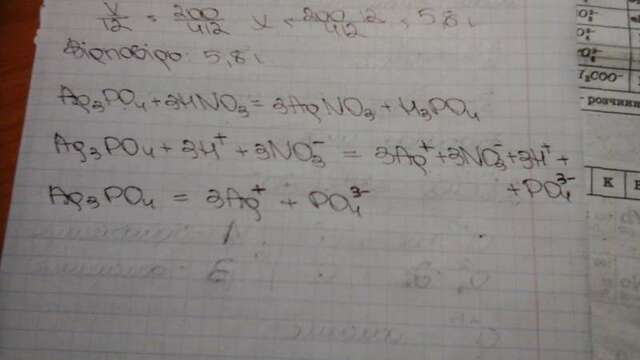 x/12 = 200/412 x = 200·12/412 = 5,8 г
Відповідь: 5,8 г
Ag₃PO₄ + 3HNO₃ = 3AgNO₃ + H₃PO₄
Ag₃PO₄ + 3H⁺ + 3NO₃⁻ = 3Ag⁺ + 3NO₃⁻ + 3H⁺ +
+ PO₄³⁻
Ag₃PO₄ = 3Ag⁺ + PO₄³⁻
COO⁻
розчинн
К